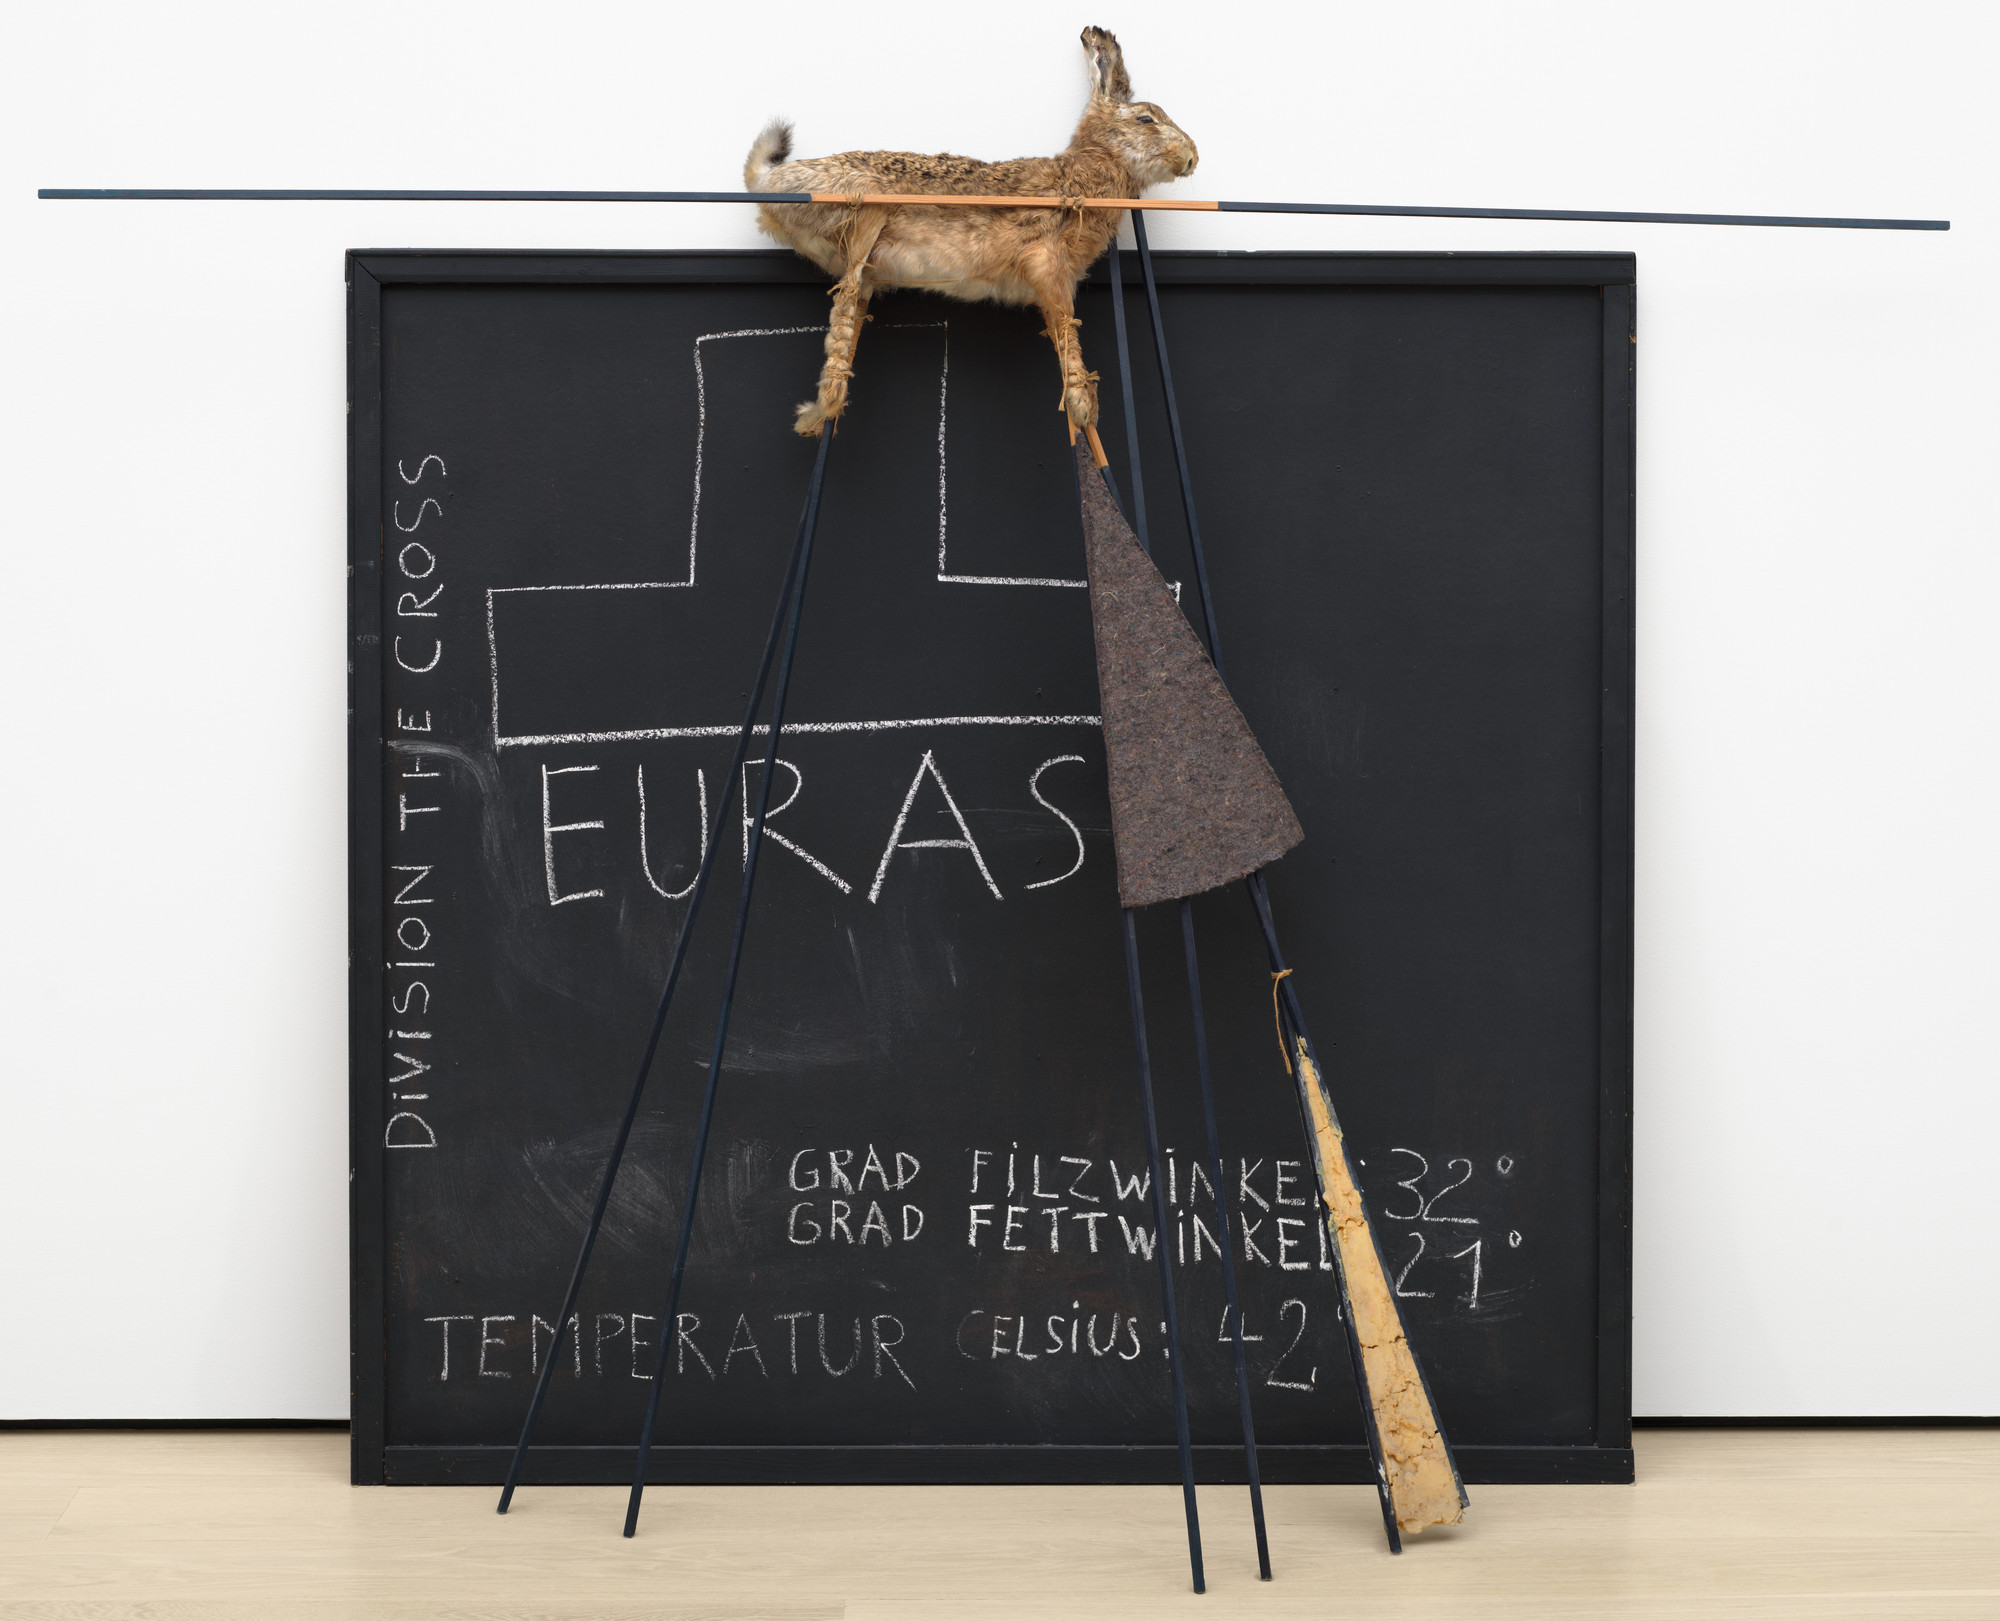 DiViSiON THE CROSS
EURAS
GRAD FiLZWiNKEL: 32°
GRAD FETTWiNKEL 21°
TEMPERATUR CELSiUS: 42°